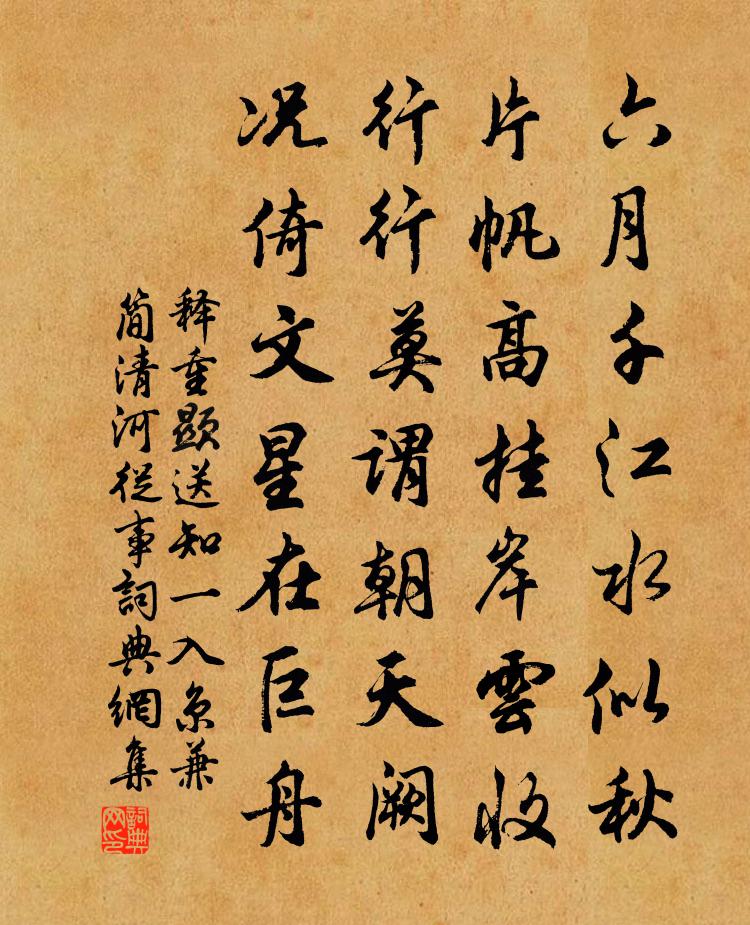 六月千江水似秋
片帆高挂岸雲收
行行莫谓朝天阙
况倚文星在巨舟
释重显送知一入京兼
简清河從事詞典網集
詞典网印